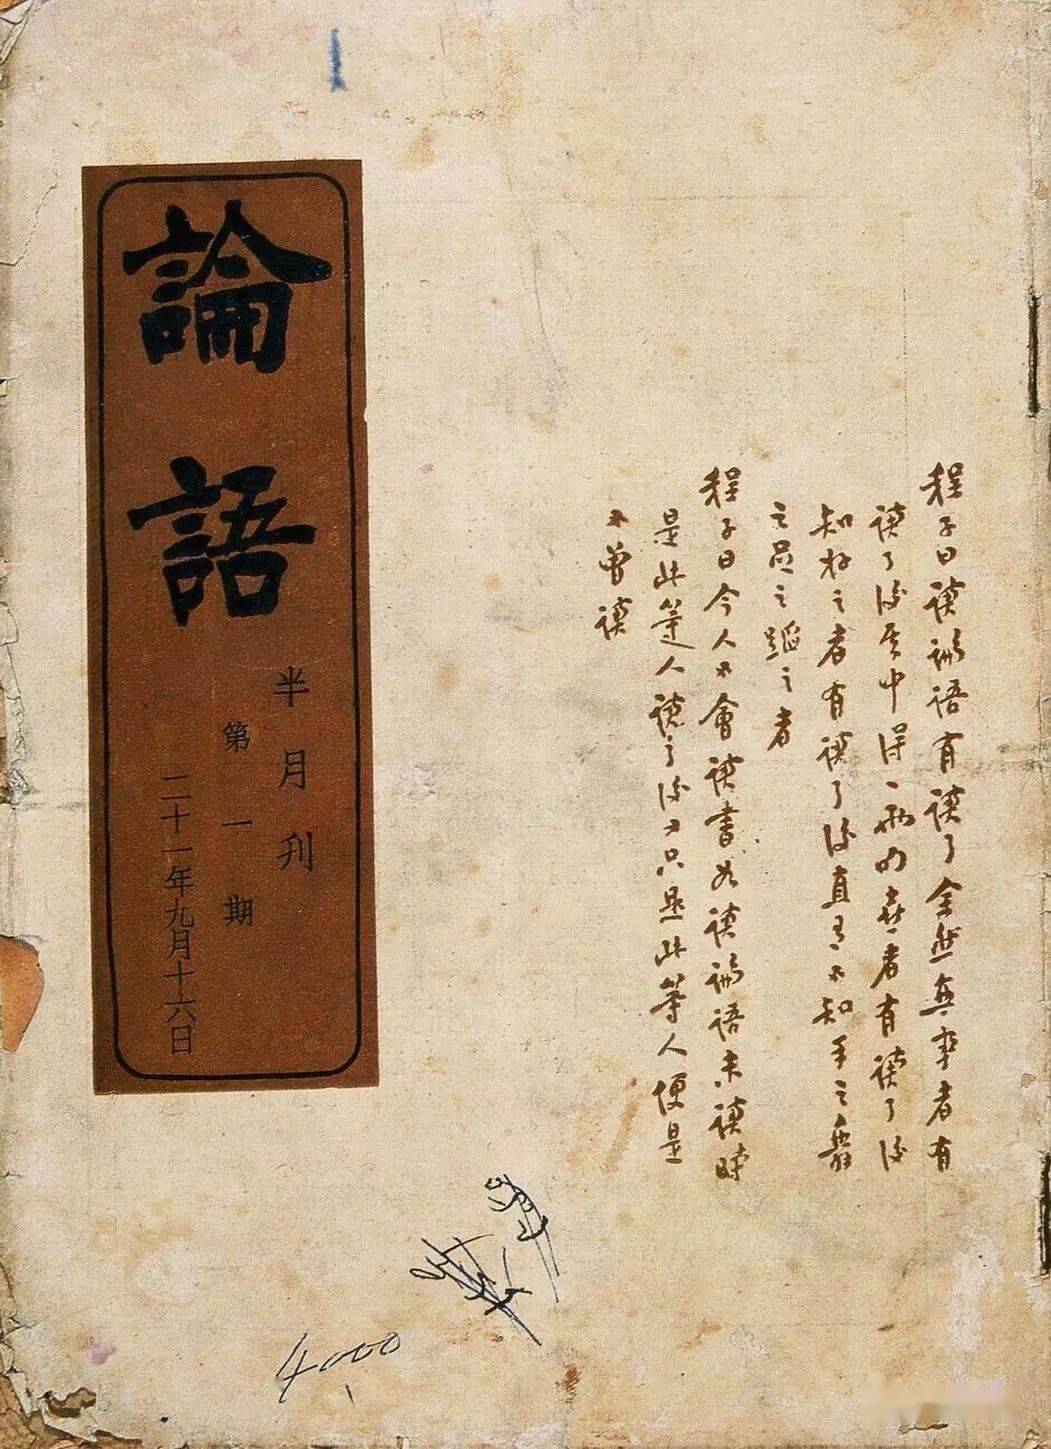 論語
半月刊
第一期
二十一年九月十六日
程子曰讀論語有讀了全然無事者有
讀了後其中得一兩句喜者有讀了後
知好之者有讀了後直有不知手之舞
之足之蹈之者
程子曰今人不會讀書如讀論語未讀時
是此等人讀了後又只是此等人便是
不曾讀
4000